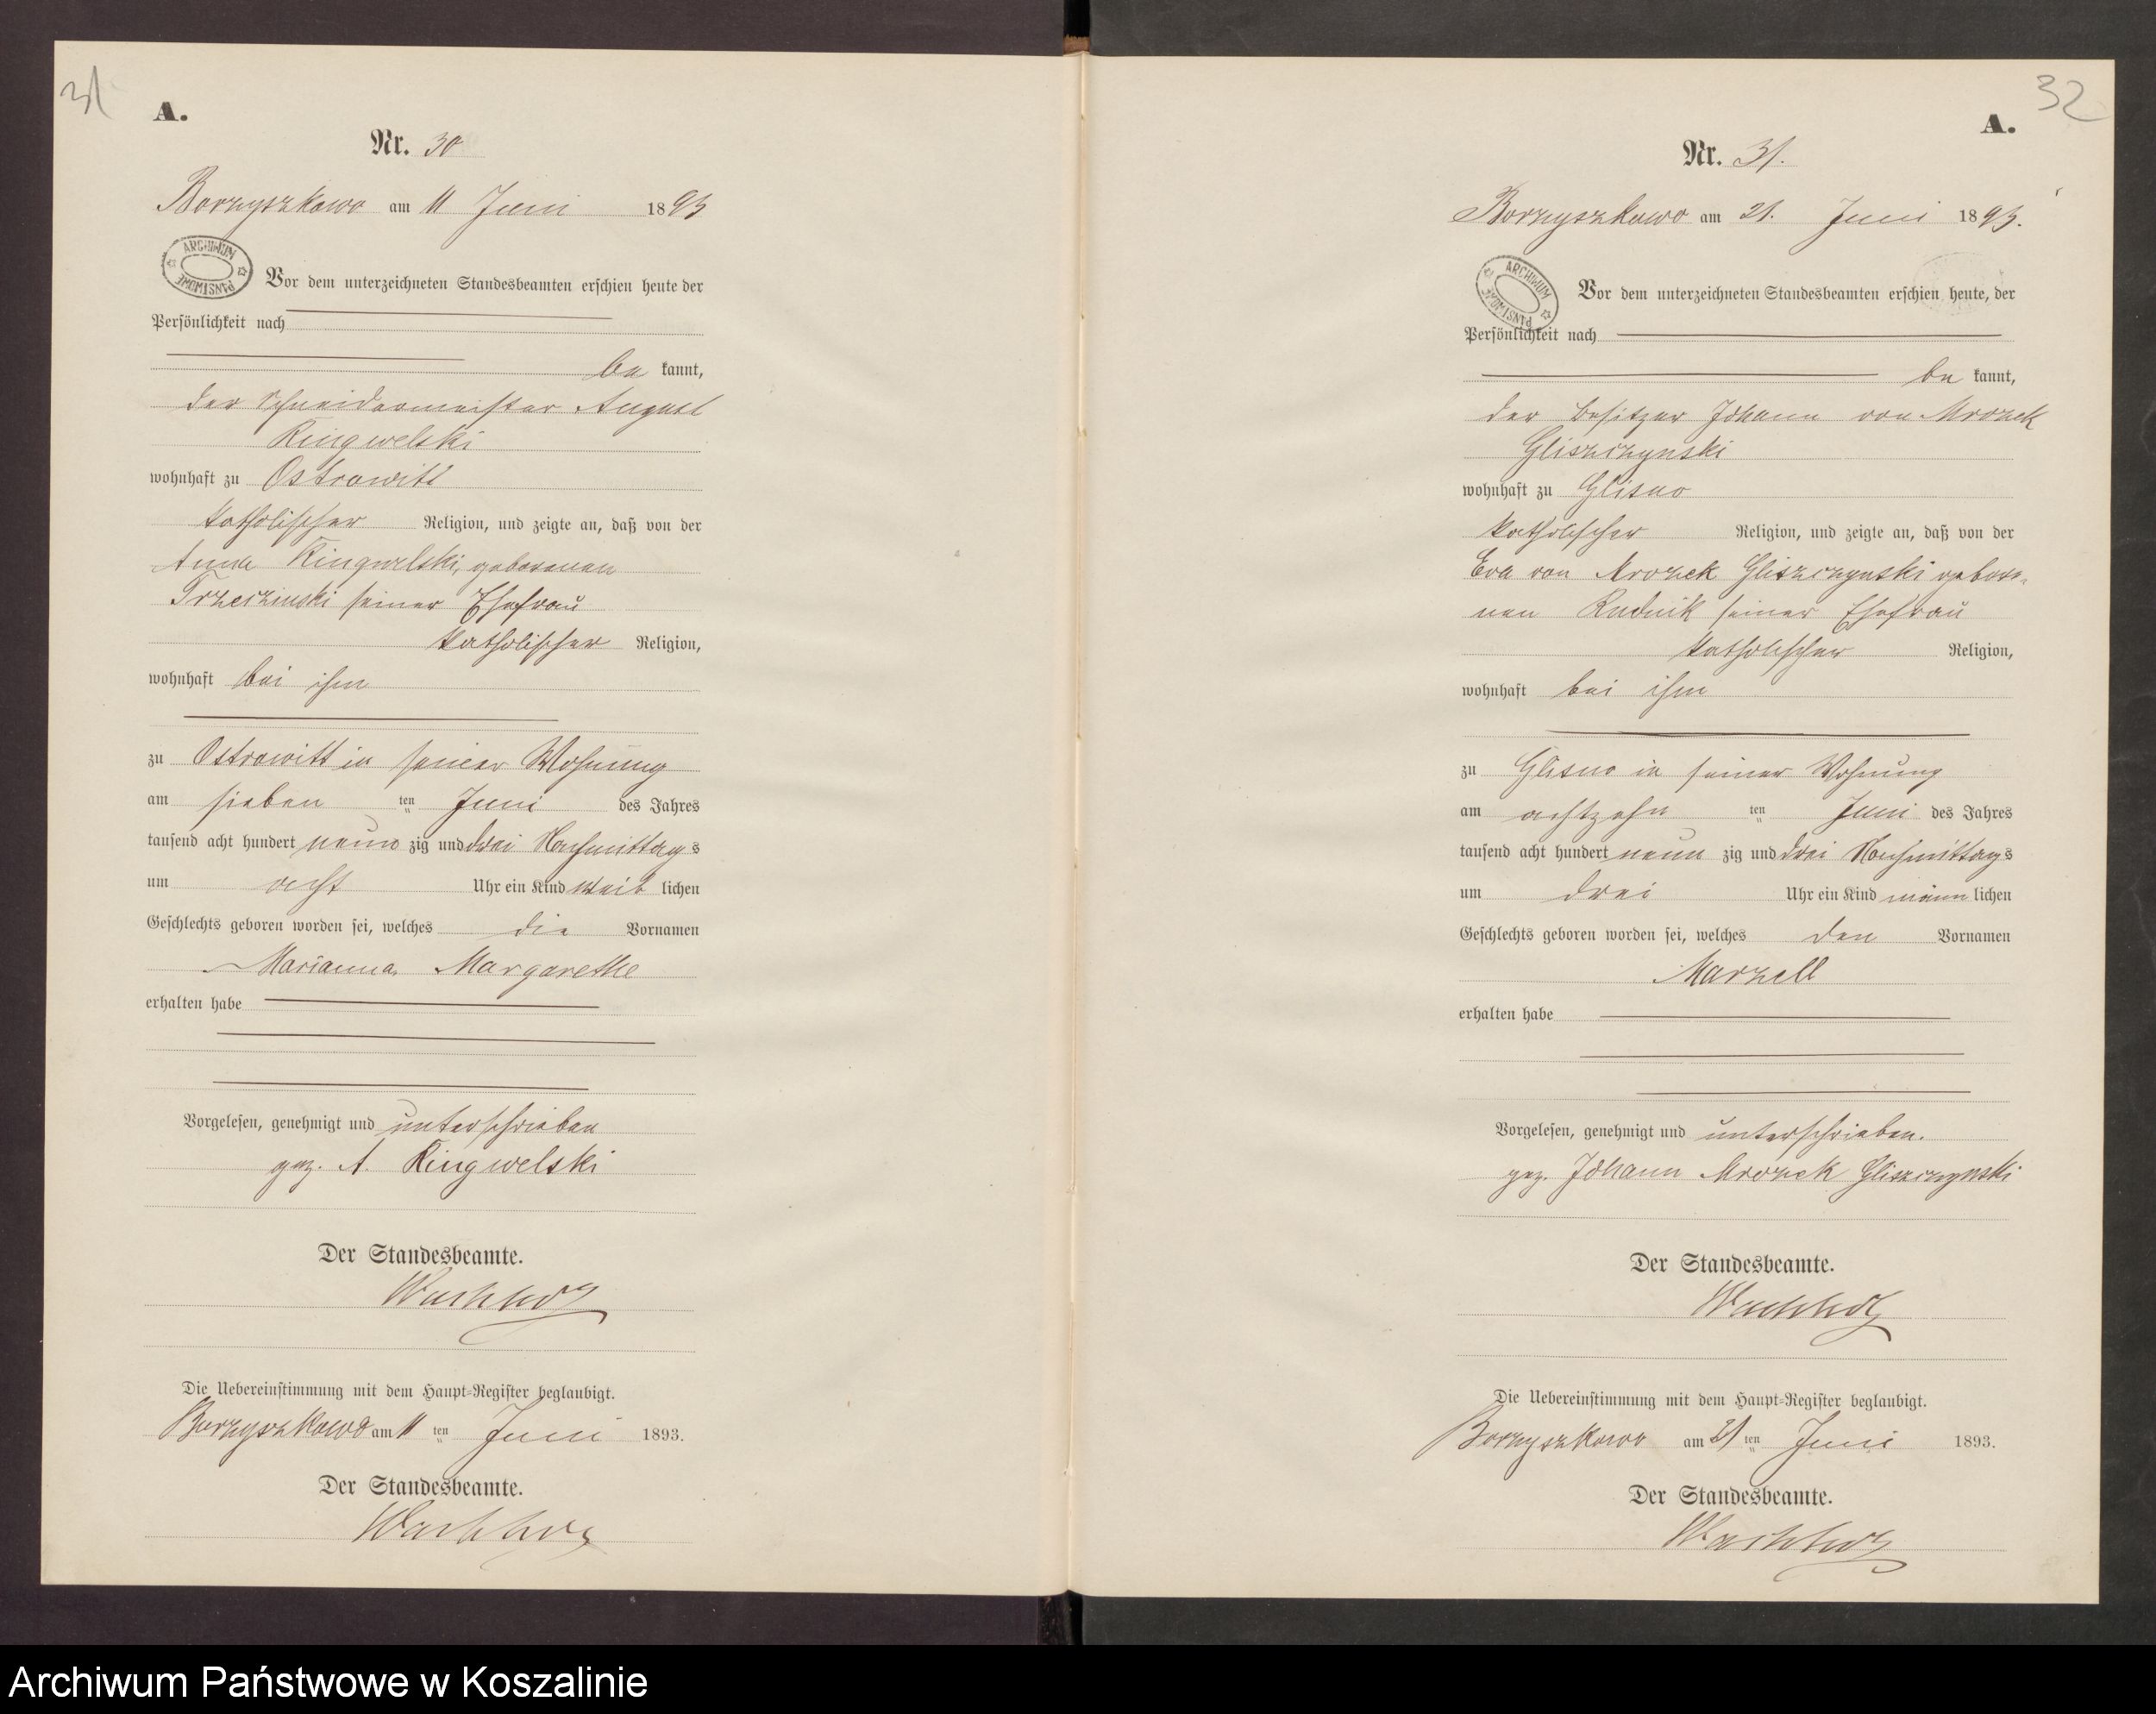 31
A.
Nr. 30
Borzyszkowo am 11 Juni 1893
ARCHIWUM PAŃSTWOWE
Vor dem unterzeichneten Standesbeamten erschien heute der
Persönlichkeit nach
be kannt,
der Schneidermeister August
Ringwelski
wohnhaft zu Ostrowitt
katholischer Religion, und zeigte an, daß von der
Anna Ringwelski, geborenen
Trzeczinski seiner Ehefrau
katholischer Religion,
wohnhaft bei ihm
zu Ostrowitt in seiner Wohnung
am sieben ten Juni des Jahres
tausend acht hundert neun zig und drei Nachmittags
um acht Uhr ein Kind weib lichen
Geschlechts geboren worden sei, welches die Vornamen
Marianna Margarethe
erhalten habe
Vorgelesen, genehmigt und unterschrieben
gez. A. Ringwelski
Der Standesbeamte.
Wachholz
Die Uebereinstimmung mit dem Haupt-Register beglaubigt.
Borzyszkowo am 11 ten Juni 1893.
Der Standesbeamte.
Wachholz
32
A.
Nr. 31.
Borzyszkowo am 21. Juni 1893.
ARCHIWUM PAŃSTWOWE
Vor dem unterzeichneten Standesbeamten erschien heute, der
Persönlichkeit nach
be kannt,
der Besitzer Johann von Mrozek
Gliszczynski
wohnhaft zu Glisno
katholischer Religion, und zeigte an, daß von der
Eva von Mrozek Gliszczynski gebore-
nen Rudnik seiner Ehefrau
katholischer Religion,
wohnhaft bei ihm
zu Glisno in seiner Wohnung
am achtzehn ten Juni des Jahres
tausend acht hundert neun zig und drei Nachmittags
um drei Uhr ein Kind männ lichen
Geschlechts geboren worden sei, welches den Vornamen
Marzell
erhalten habe
Vorgelesen, genehmigt und unterschrieben.
gez. Johann Mrozek Gliszczynski
Der Standesbeamte.
Wachholz
Die Uebereinstimmung mit dem Haupt-Register beglaubigt.
Borzyszkowo am 21 ten Juni 1893.
Der Standesbeamte.
Wachholz
Archiwum Państwowe w Koszalinie